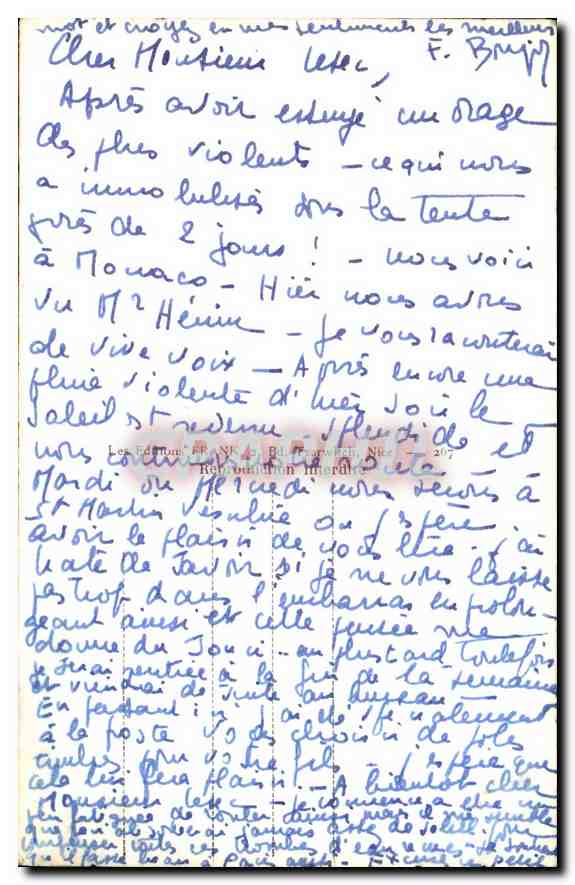 mot et croyez en mes sentiments les meilleurs
Cher Monsieur
F.
Après avoir essuyé un orage
des plus violents – ce qui nous
a immobilisés sous la tente
près de 2 jours ! – nous voici
à Monaco – Hier nous avons
vu Mr – Je vous raconterai
de vive voix – Après encore une
pluie violente d'hier soir le
soleil est revenu splendide et
Les Editions FRANK, Nice — 207
nous continuons
Reproduction Interdite
Mardi ou Mercredi nous serons à
St Martin Vésubie où j'espère
avoir le plaisir de vous lire. J'ai
hâte de savoir si je ne vous laisse
pas trop dans l'embarras en prolon-
geant ainsi et cette pensée me
donne du souci – au plus tard toutefois
je serai rentrée à la fin de la semaine
et viendrai de suite au bureau
En passant ici j'ai également
à la poste choisir de jolis
timbres pour votre fils – j'espère que
cela lui fera plaisir – A bientôt cher
Monsieur – Je commence à être un
peu mais il me semble
que jamais assez de soleil pour
trombes d'eau
à Paris aussi – petit